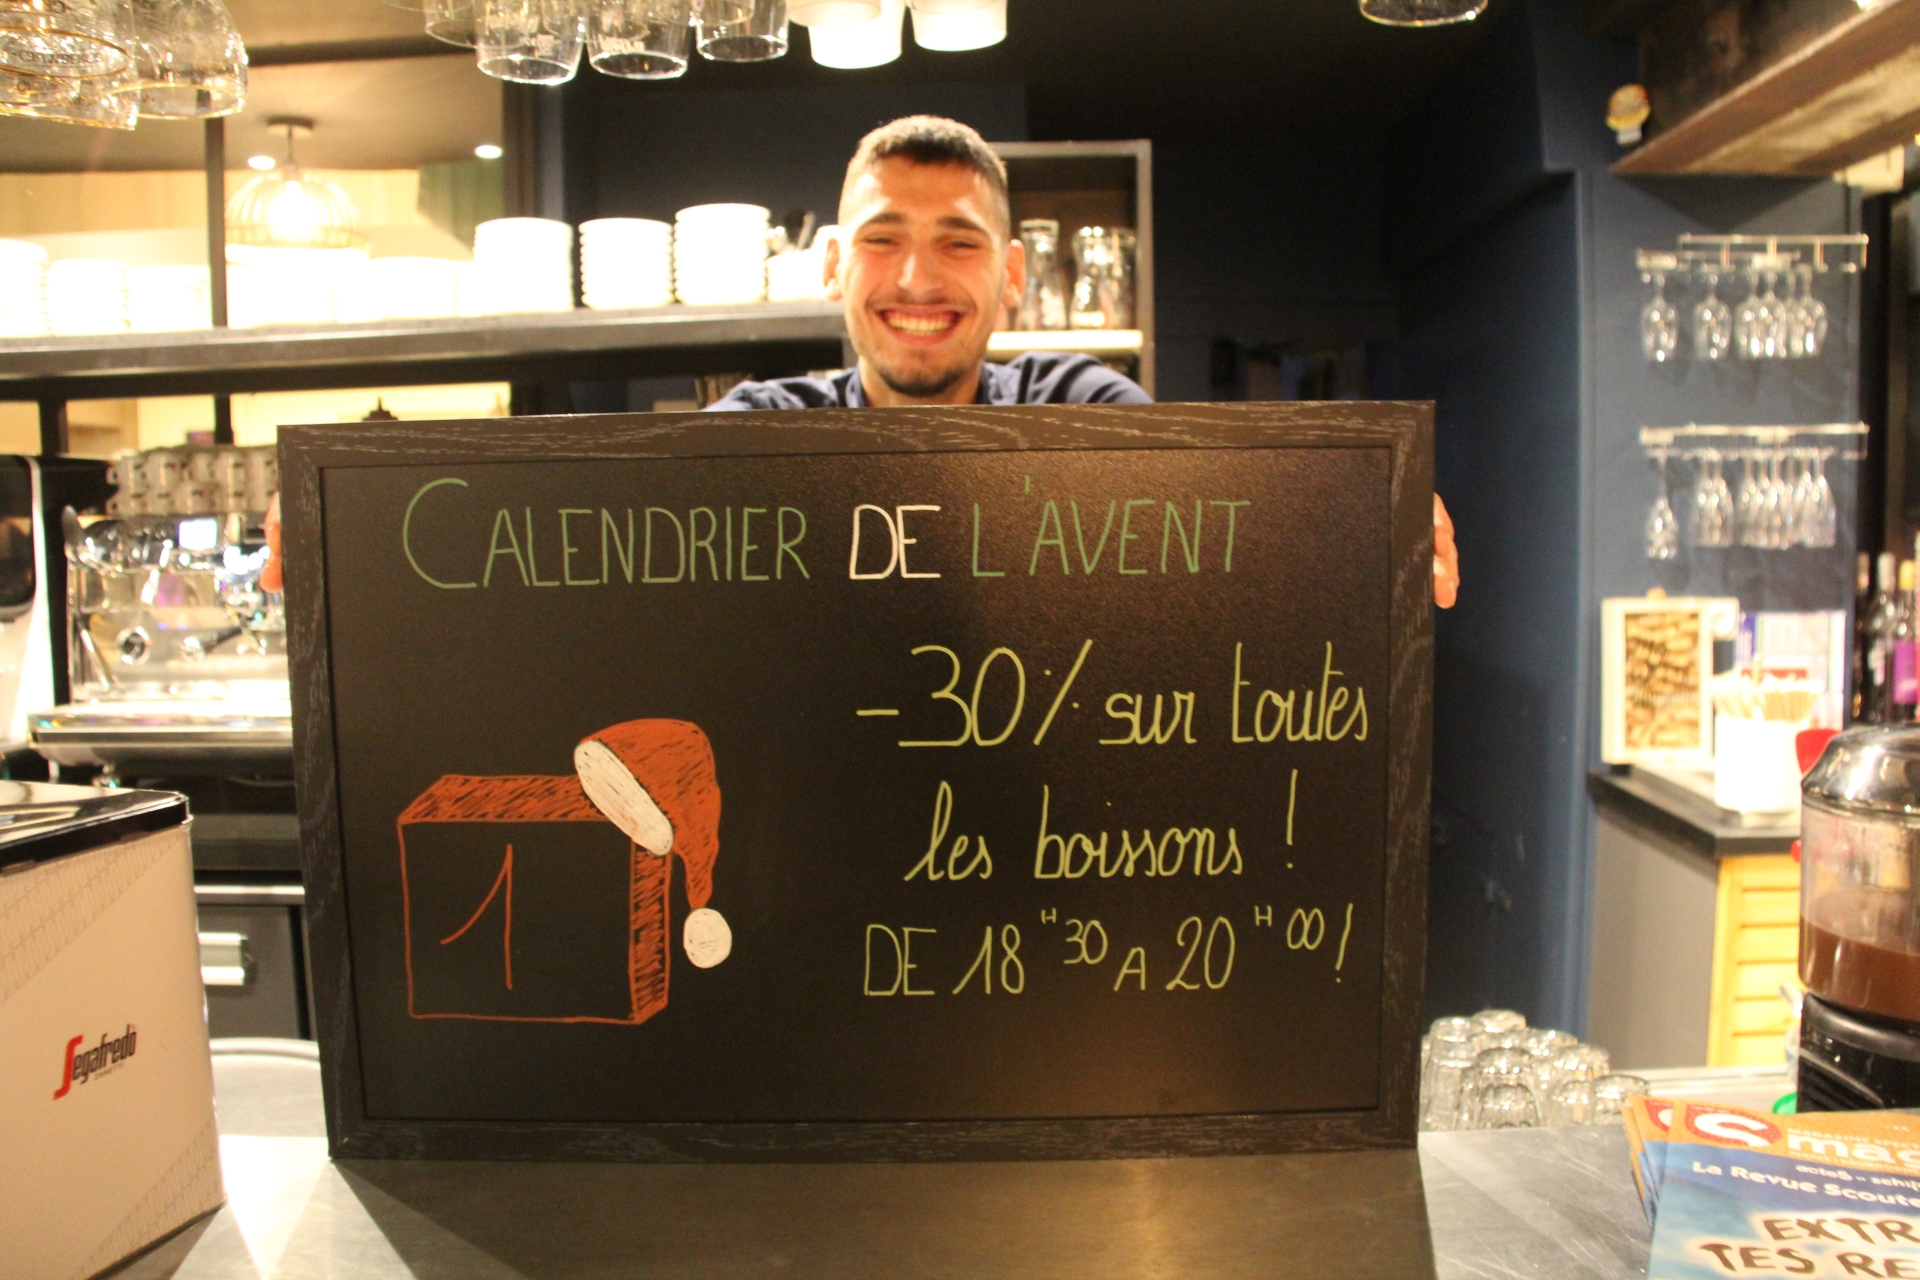 CALENDRIER DE L'AVENT
-30% sur toutes
les boissons !
DE 18H30 A 20H00!
1
Segafredo
ZANETTI
La Revue Scoute
EXTR
TES RE